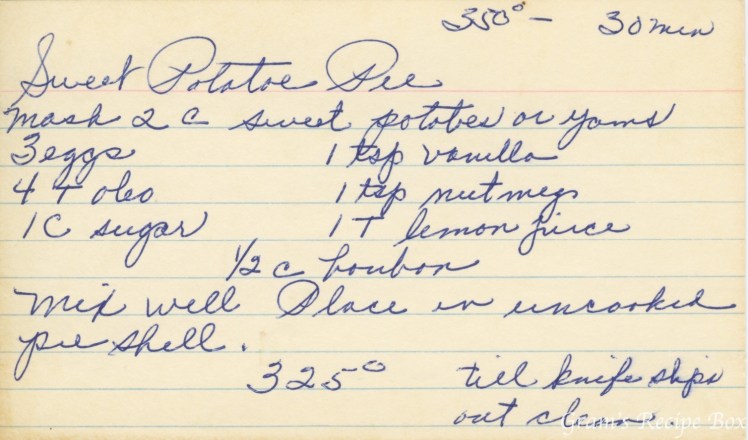 350° - 30 min
Sweet Potatoe Pie
Mash 2 C sweet potatoes or yams
3 eggs 1 tsp vanilla
4 T oleo 1 tsp nutmeg
1 C sugar 1 T lemon juice
1/2 c boubon
Mix well Place in uncooked
pie shell.
325° till knife slips
out clean.
Gram's Recipe Box